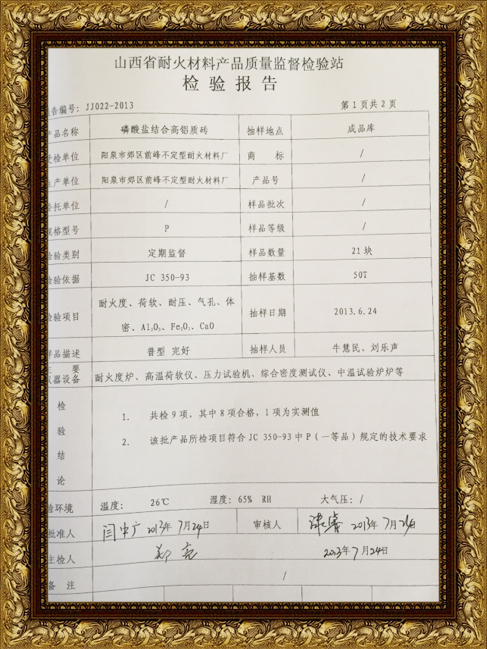 山西省耐火材料产品质量监督检验站
检验报告
告编号: JJ022-2013 第1页共2页
产品名称 磷酸盐结合高铝质砖 抽样地点 成品库
受检单位 阳泉市郊区前峰不定型耐火材料厂 商 标 /
生产单位 阳泉市郊区前峰不定型耐火材料厂 产品号 /
委托单位 / 样品批次 /
规格型号 P 样品等级 /
检验类别 定期监督 样品数量 21块
检验依据 JC 350-93 抽样基数 50T
检验项目 耐火度、荷软、耐压、气孔、体
密、Al₂O₃、Fe₂O₃、CaO 抽样日期 2013.6.24
样品描述 普型 完好 抽样人员 牛慧民、刘乐声
主 要
仪器设备 耐火度炉、高温荷软仪、压力试验机、综合密度测试仪、中温试验炉炉等
检
验
结
论
1. 共检9项,其中8项合格,1项为实测值
2. 该批产品所检项目符合JC 350-93中P(一等品)规定的技术要求
检验环境 温度: 26℃ 湿度: 65% RH 大气压: /
批准人 闫中广 2013年7月24日 审核人 2013年7月24日
主检人 郑亮 2013年7月24日
备 注 /